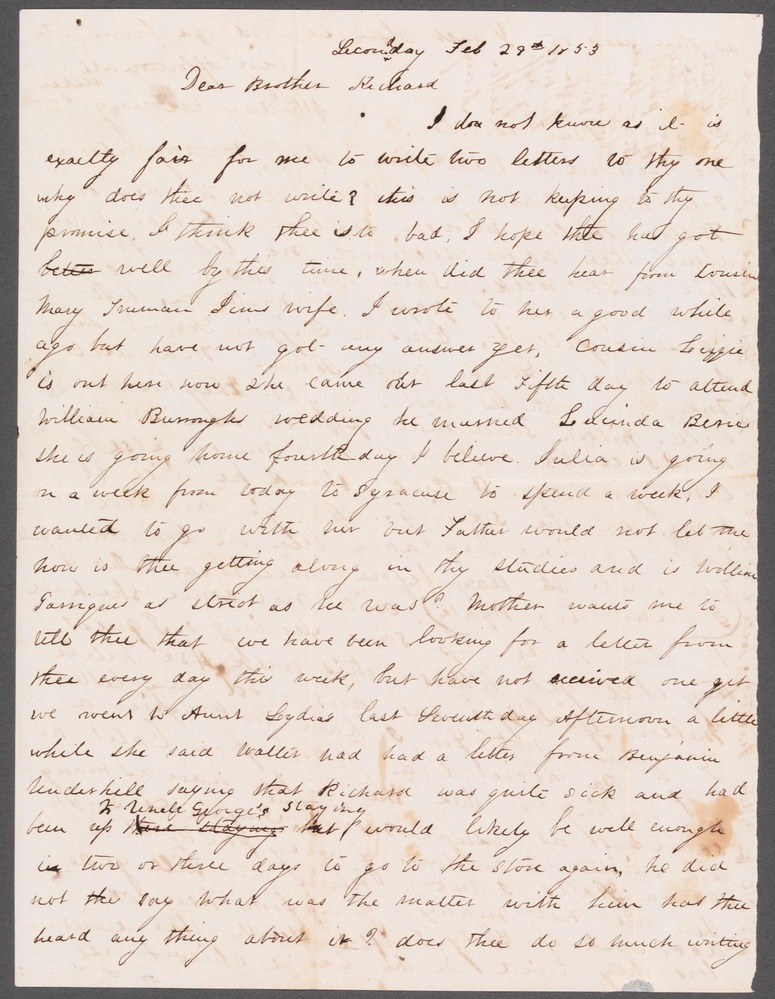 Secondday Feb 28th 1853
Dear Brother Richard
I don not know as it is
exactly fair for me to write two letters to thy one
why does thee not write? this is not keeping to thy
promise. I think thee is to bad. I hope thee has got
better well by this time, when did thee hear from Cousin
Mary Truman Jims wife. I wrote to her a good while
ago but have not got any answer yet, Cousin Lizzie
is out here now she came out last Fifth day to attend
William Burroughs wedding he married Lucinda
she is going home fourth day I believe. Julia is going
on a week from today to Syracuse to spend a week, I
wanted to go with her but Father would not let me
how is thee getting along in thy studies and is William
Garrigues as strict as he was? Mother wants me to
tell thee that we have been looking for a letter from
thee every day this week, but have not received one yet
we went to Aunt Lydias last Seventh day afternoon a little
while she said Walter had had a letter from Benjamin
Underhill saying that Richard was quite sick and had
to Uncle George's staying
been up there staying but would likely be well enough
in two or three days to go to the store again, he did
not the say what was the matter with him has thee
heard any thing about it? does thee do so much writing